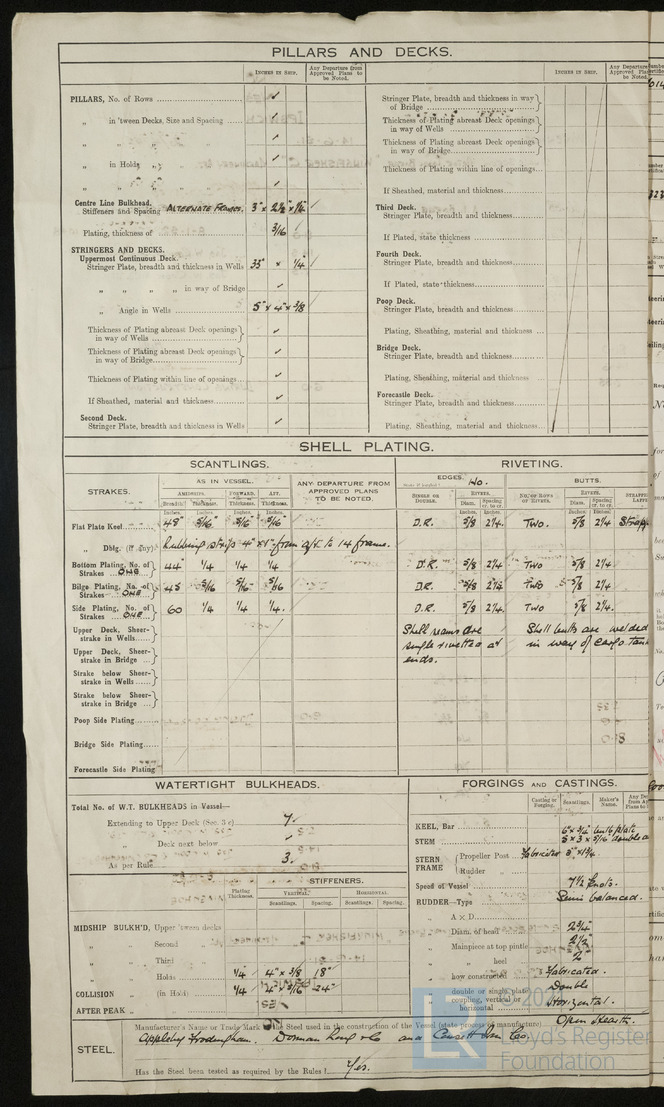 PILLARS AND DECKS.
INCHES IN SHIP.
Any Departure from Approved Plans to be Noted.
PILLARS, No. of Rows
„ in 'tween Decks, Size and Spacing
„ „ „
„ in Holds „
„ „ „
Centre Line Bulkhead.
Stiffeners and Spacing ALTERNATE FRAMES. 3" x 2½" x ¼"
Plating, thickness of 3/16
STRINGERS AND DECKS.
Uppermost Continuous Deck.
Stringer Plate, breadth and thickness in Wells 35" x ¼"
„ „ „ „ in way of Bridge
„ Angle in Wells 5" x 4" x 3/8
Thickness of Plating abreast Deck openings in way of Wells
Thickness of Plating abreast Deck openings in way of Bridge
Thickness of Plating within line of openings
If Sheathed, material and thickness
Second Deck.
Stringer Plate, breadth and thickness in Wells
INCHES IN SHIP.
Any Departure
Approved Plans
be Noted.
Stringer Plate, breadth and thickness in way of Bridge
Thickness of Plating abreast Deck openings in way of Wells
Thickness of Plating abreast Deck openings in way of Bridge
Thickness of Plating within line of openings
If Sheathed, material and thickness
Third Deck.
Stringer Plate, breadth and thickness
If Plated, state thickness
Fourth Deck.
Stringer Plate, breadth and thickness
If Plated, state thickness
Poop Deck.
Stringer Plate, breadth and thickness
Plating, Sheathing, material and thickness
Bridge Deck.
Stringer Plate, breadth and thickness
Plating, Sheathing, material and thickness
Forecastle Deck.
Stringer Plate, breadth and thickness
Plating, Sheathing, material and thickness
SHELL PLATING.
SCANTLINGS.
RIVETING.
STRAKES.
AS IN VESSEL.
ANY DEPARTURE FROM APPROVED PLANS TO BE NOTED.
EDGES. No.
BUTTS.
AMIDSHIPS. FORWARD. AFT.
Breadth. Thickness. Thickness. Thickness.
SINGLE OR DOUBLE.
RIVETS.
Diam. Spacing cr. to cr.
NO. OF ROWS OF RIVETS.
RIVETS.
Diam. Spacing cr. to cr.
Inches. Inches. Inches. Inches.
Flat Plate Keel 48" 5/16" 5/16" 5/16" D.R. 5/8 2¼ Two. 5/8 2¼
„ Dblg. (if any) Rubbing strip 4" x 1" from aft to 14 frame.
Bottom Plating, No. of Strakes ONE 44" ¼ ¼ ¼ D.R. 5/8 2¼ Two 5/8 2¼
Bilge Plating, No. of Strakes ONE 45 5/16 5/16 5/16 D.R. 5/8 2¼ Two 5/8 2¼
Side Plating, No. of Strakes ONE 60 ¼ ¼ ¼. D.R. 5/8 2¼ Two 5/8 2¼.
Upper Deck, Sheerstrake in Wells
Upper Deck, Sheerstrake in Bridge
Strake below Sheerstrake in Wells
Strake below Sheerstrake in Bridge
Poop Side Plating
Bridge Side Plating
Forecastle Side Plating
Shell seams are
single rivetted at
ends.
Shell butts are welded
in way of cargo tank
WATERTIGHT BULKHEADS.
Total No. of W.T. BULKHEADS in Vessel—
Extending to Upper Deck (Sec. 3 c) 7.
„ Deck next below
As per Rule 3.
Plating Thickness.
STIFFENERS.
VERTICAL. HORIZONTAL.
Scantlings. Spacing. Scantlings. Spacing.
MIDSHIP BULKH'D, Upper 'tween decks
„ „ Second „
„ „ Third „
„ „ Holds ¼ 4" x 3/8 18"
COLLISION „ (in Hold) ¼ 4" x 5/16 24"
AFTER PEAK „
FORGINGS AND CASTINGS.
Casting or Forging. Scantlings. Maker's Name.
KEEL, Bar
STEM
STERN FRAME
Propeller Post Fabricated 5" x 1¾
Rudder „
Speed of Vessel 7½ knots.
RUDDER—Type Semi balanced.
„ A x D
„ Diam. of head 2¾"
„ Mainpiece at top pintle 2½"
„ „ heel 2"
„ how constructed Fabricated.
„ double or single plate Double
„ coupling, vertical or horizontal Horizontal.
STEEL.
Manufacturer's Name or Trade Mark of the Steel used in the construction of the Vessel (state process of manufacture) Open Hearth.
Appleby Frodingham. Dorman Long & Co and Consett Iron Co.
Has the Steel been tested as required by the Rules? Yes.
LR
Lloyd's Register
Foundation